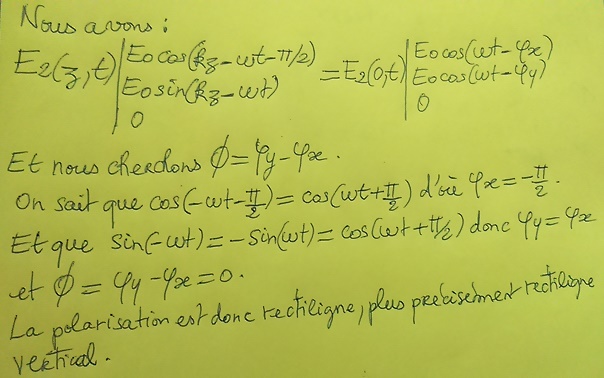 Nous avons :
E2(z,t) | E0cos(kz-wt-π/2) = E2(0,t) | E0cos(wt-φx)
E0sin(kz-wt) E0cos(wt-φy)
0 0
Et nous cherchons ϕ=φy-φx.
On sait que cos(-wt-π/2)=cos(wt+π/2) d'où φx=-π/2.
Et que sin(-wt)=-sin(wt)=cos(wt+π/2) donc φy=φx
et ϕ=φy-φx=0.
La polarisation est donc rectiligne, plus précisément rectiligne
vertical.